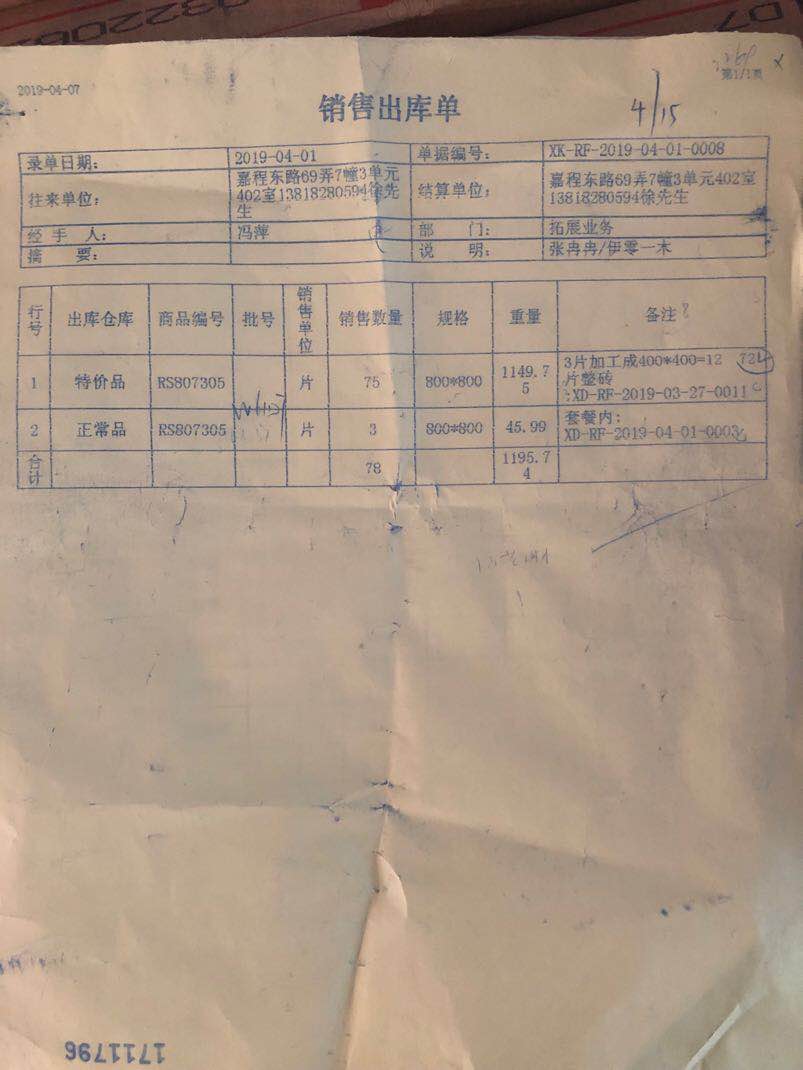 2019-04-07
第1/1页
销售出库单
4/15
录单日期: 2019-04-01 单据编号: XK-RF-2019-04-01-0008
往来单位: 嘉程东路69弄7幢3单元
402室13818280594徐先
生
结算单位: 嘉程东路69弄7幢3单元402室
13818280594徐先生
经手人: 冯萍 部门: 拓展业务
摘要: 说明: 张冉冉/伊零一木
行号 出库仓库 商品编号 批号 销售单位 销售数量 规格 重量 备注
1 特价品 RS807305 片 75 800*800 1149.75 3片加工成400*400=12
片整砖
:XD-RF-2019-03-27-0011
72
2 正常品 RS807305 片 3 800*800 45.99 套餐内:
XD-RF-2019-04-01-0003
合计 78 1195.74
1711796